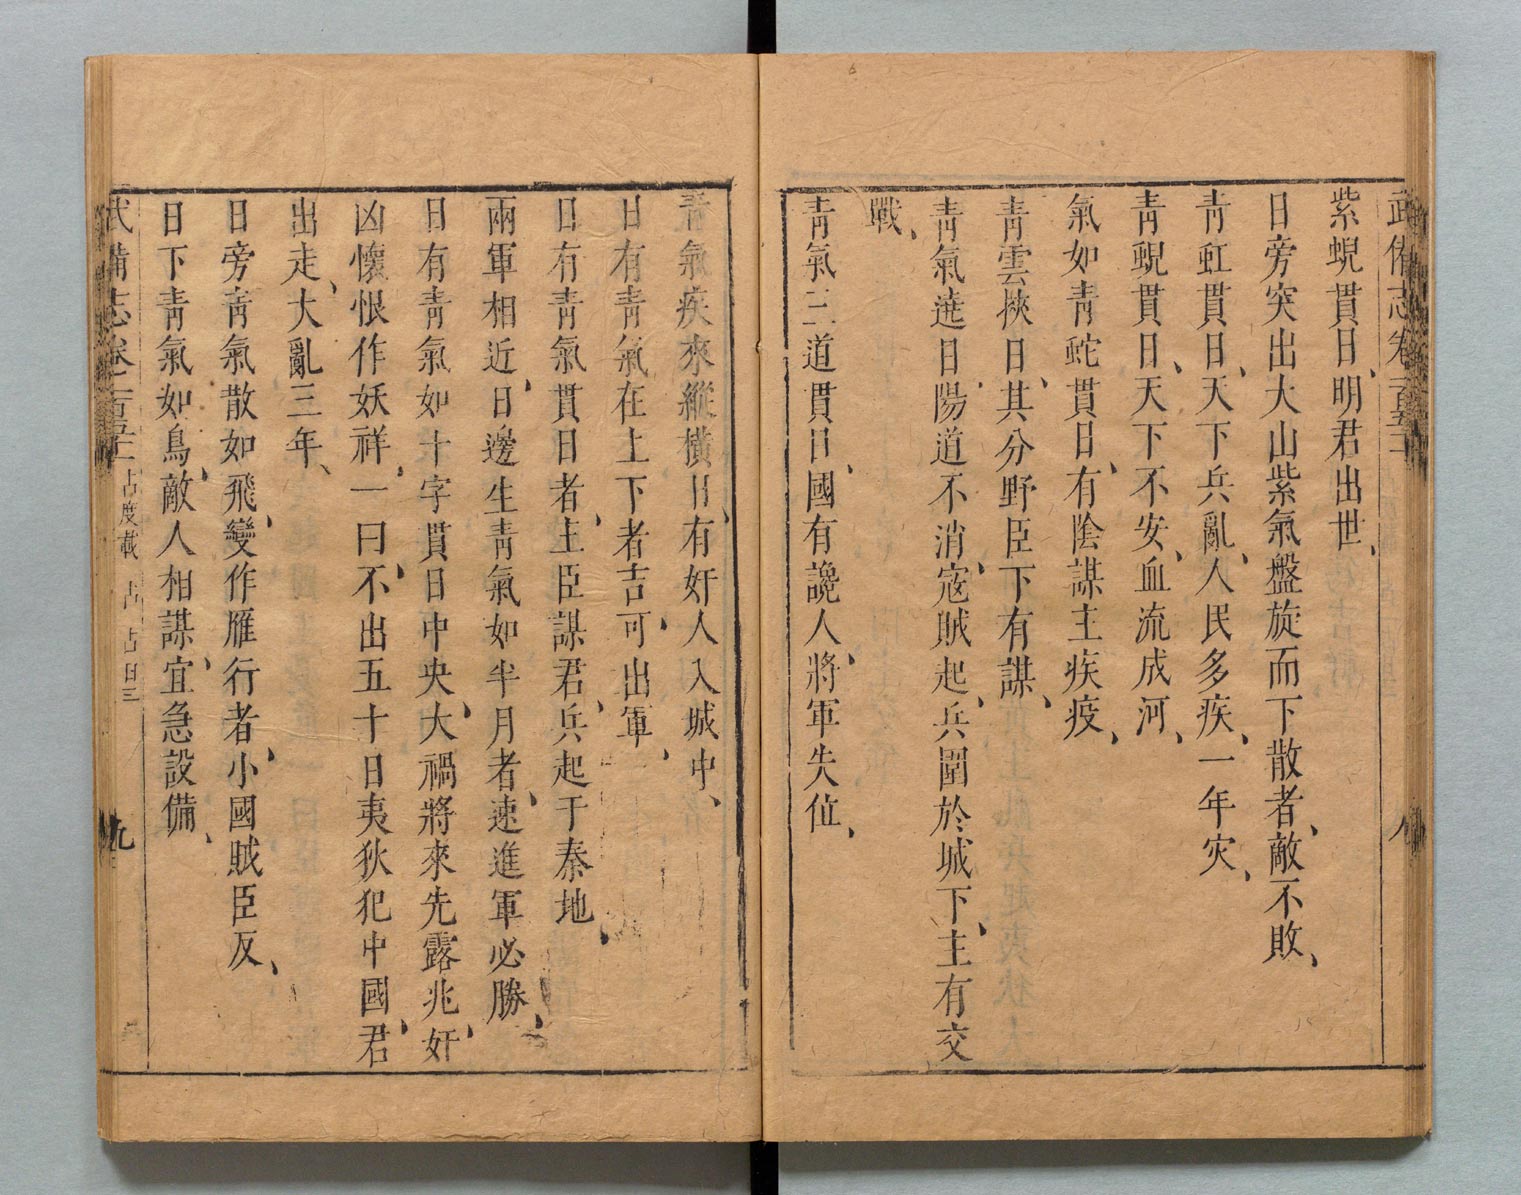 紫蜺貫日、明君出世、
日旁突出大山紫氣盤旋而下散者、敵不敗、
青虹貫日、天下兵亂、人民多疾、一年灾、
青蜺貫日、天下不安、血流成河、
氣如青蛇貫日、有陰謀主疾疫、
青雲挾日、其分野臣下有謀、
青氣遶日、陽道不消、寇賊起、兵圍於城下、主有交
戰、
青氣三道貫日、國有讒人、將軍失位、
青氣疾來縱橫日、有奸人入城中、
日有青氣在上下者吉可、出軍、
日有青氣貫日者、主臣謀君、兵起于秦地、
兩軍相近、日邊生青氣如半月者、速進軍必勝、
日有青氣如十字貫日中央、大禍將來先露兆、奸
凶懷恨作妖祥、一曰、不出五十日夷狄犯中國、君
出走、大亂三年、
日旁青氣散如飛、變作雁行者、小國賊臣反、
日下青氣如鳥、敵人相謀、宜急設備、
武備志卷一百五十 占度載 占 占日三 九